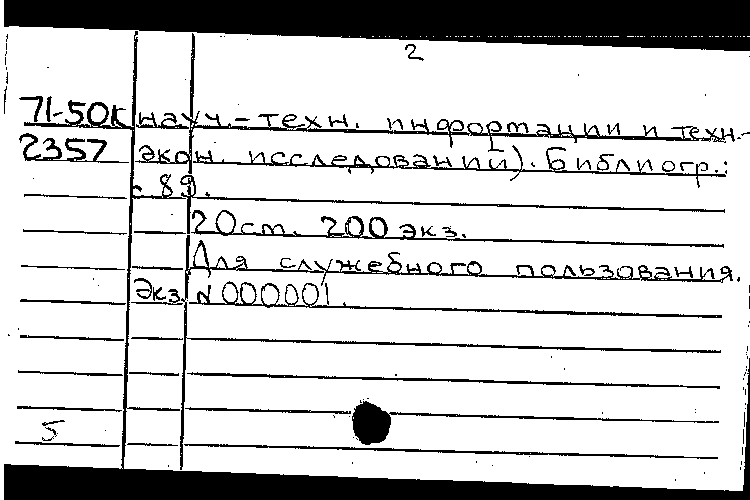 2
71-50к науч.-техн. информации и техн.-
2357 экон. исследований). Библиогр.:
с. 89.
20 см. 200 экз.
Для служебного пользования.
Экз. N 000001.
5